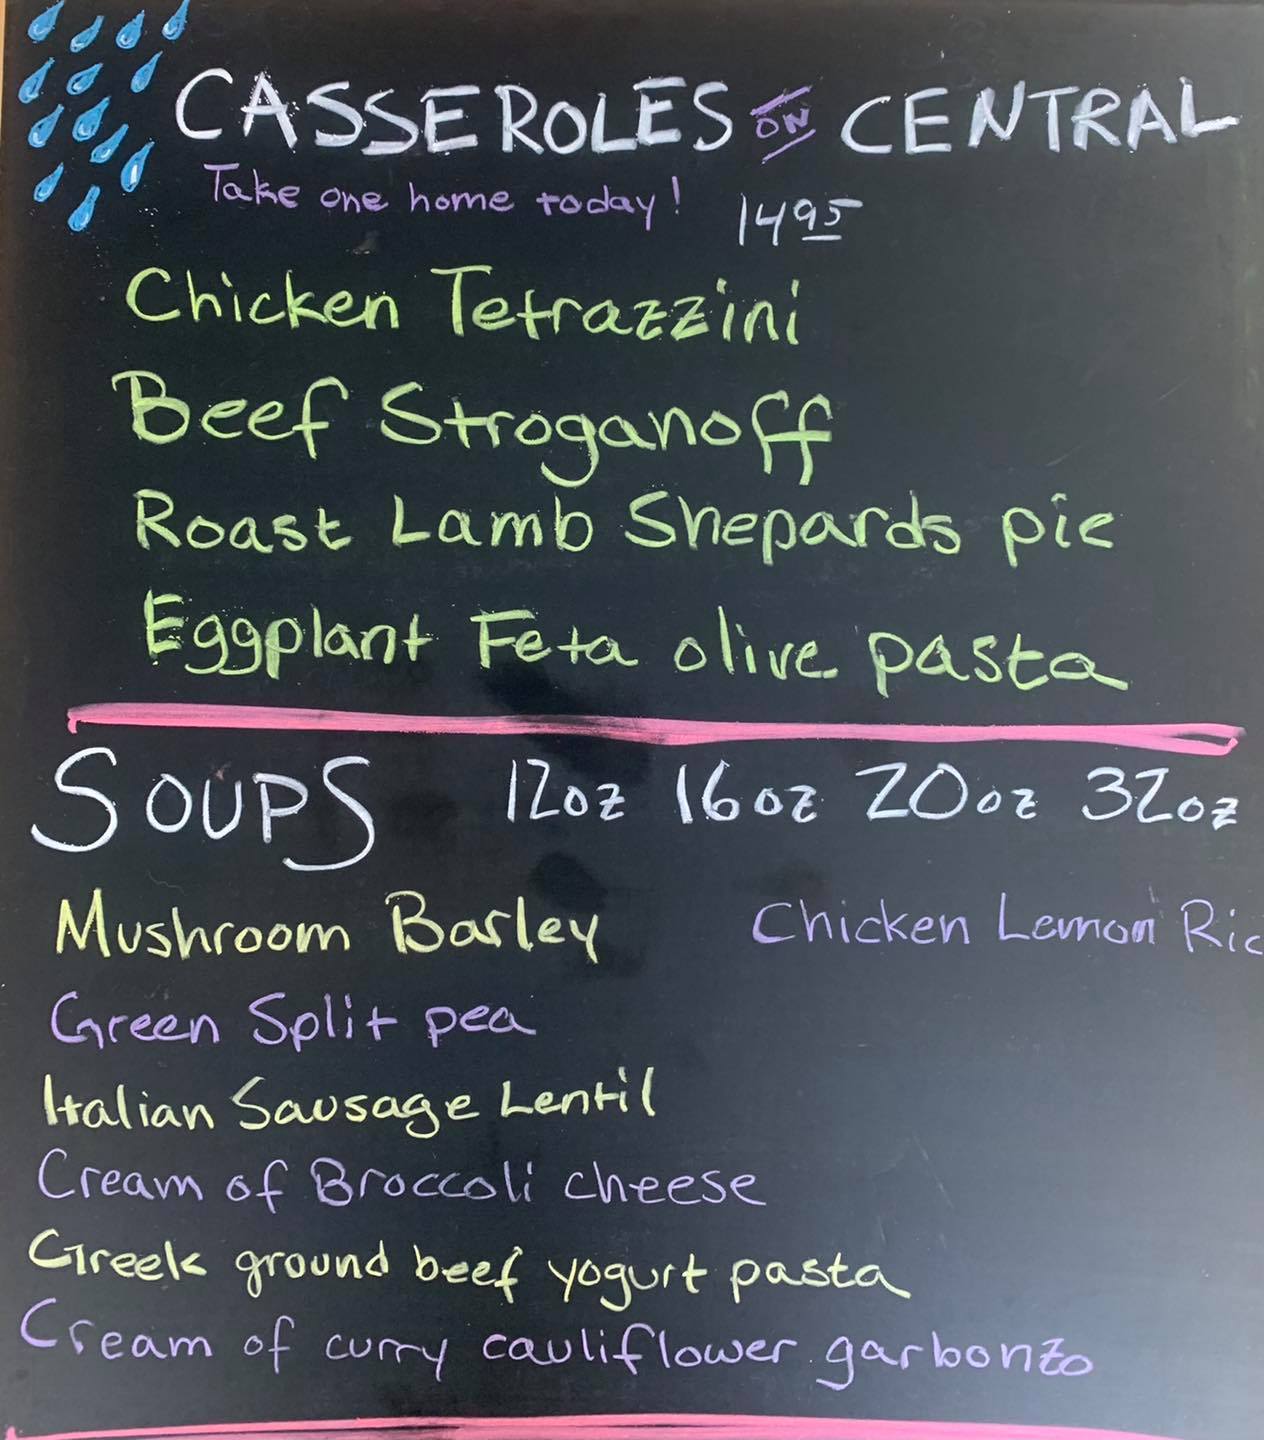 CASSEROLES ON CENTRAL
Take one home today! 14 95
Chicken Tetrazzini
Beef Stroganoff
Roast Lamb Shepards pie
Eggplant Feta olive pasta
SOUPS 12oz 16oz 20oz 32oz
Mushroom Barley Chicken Lemon Ric
Green Split pea
Italian Sausage Lentil
Cream of Broccoli cheese
Greek ground beef yogurt pasta
Cream of curry cauliflower garbonzo